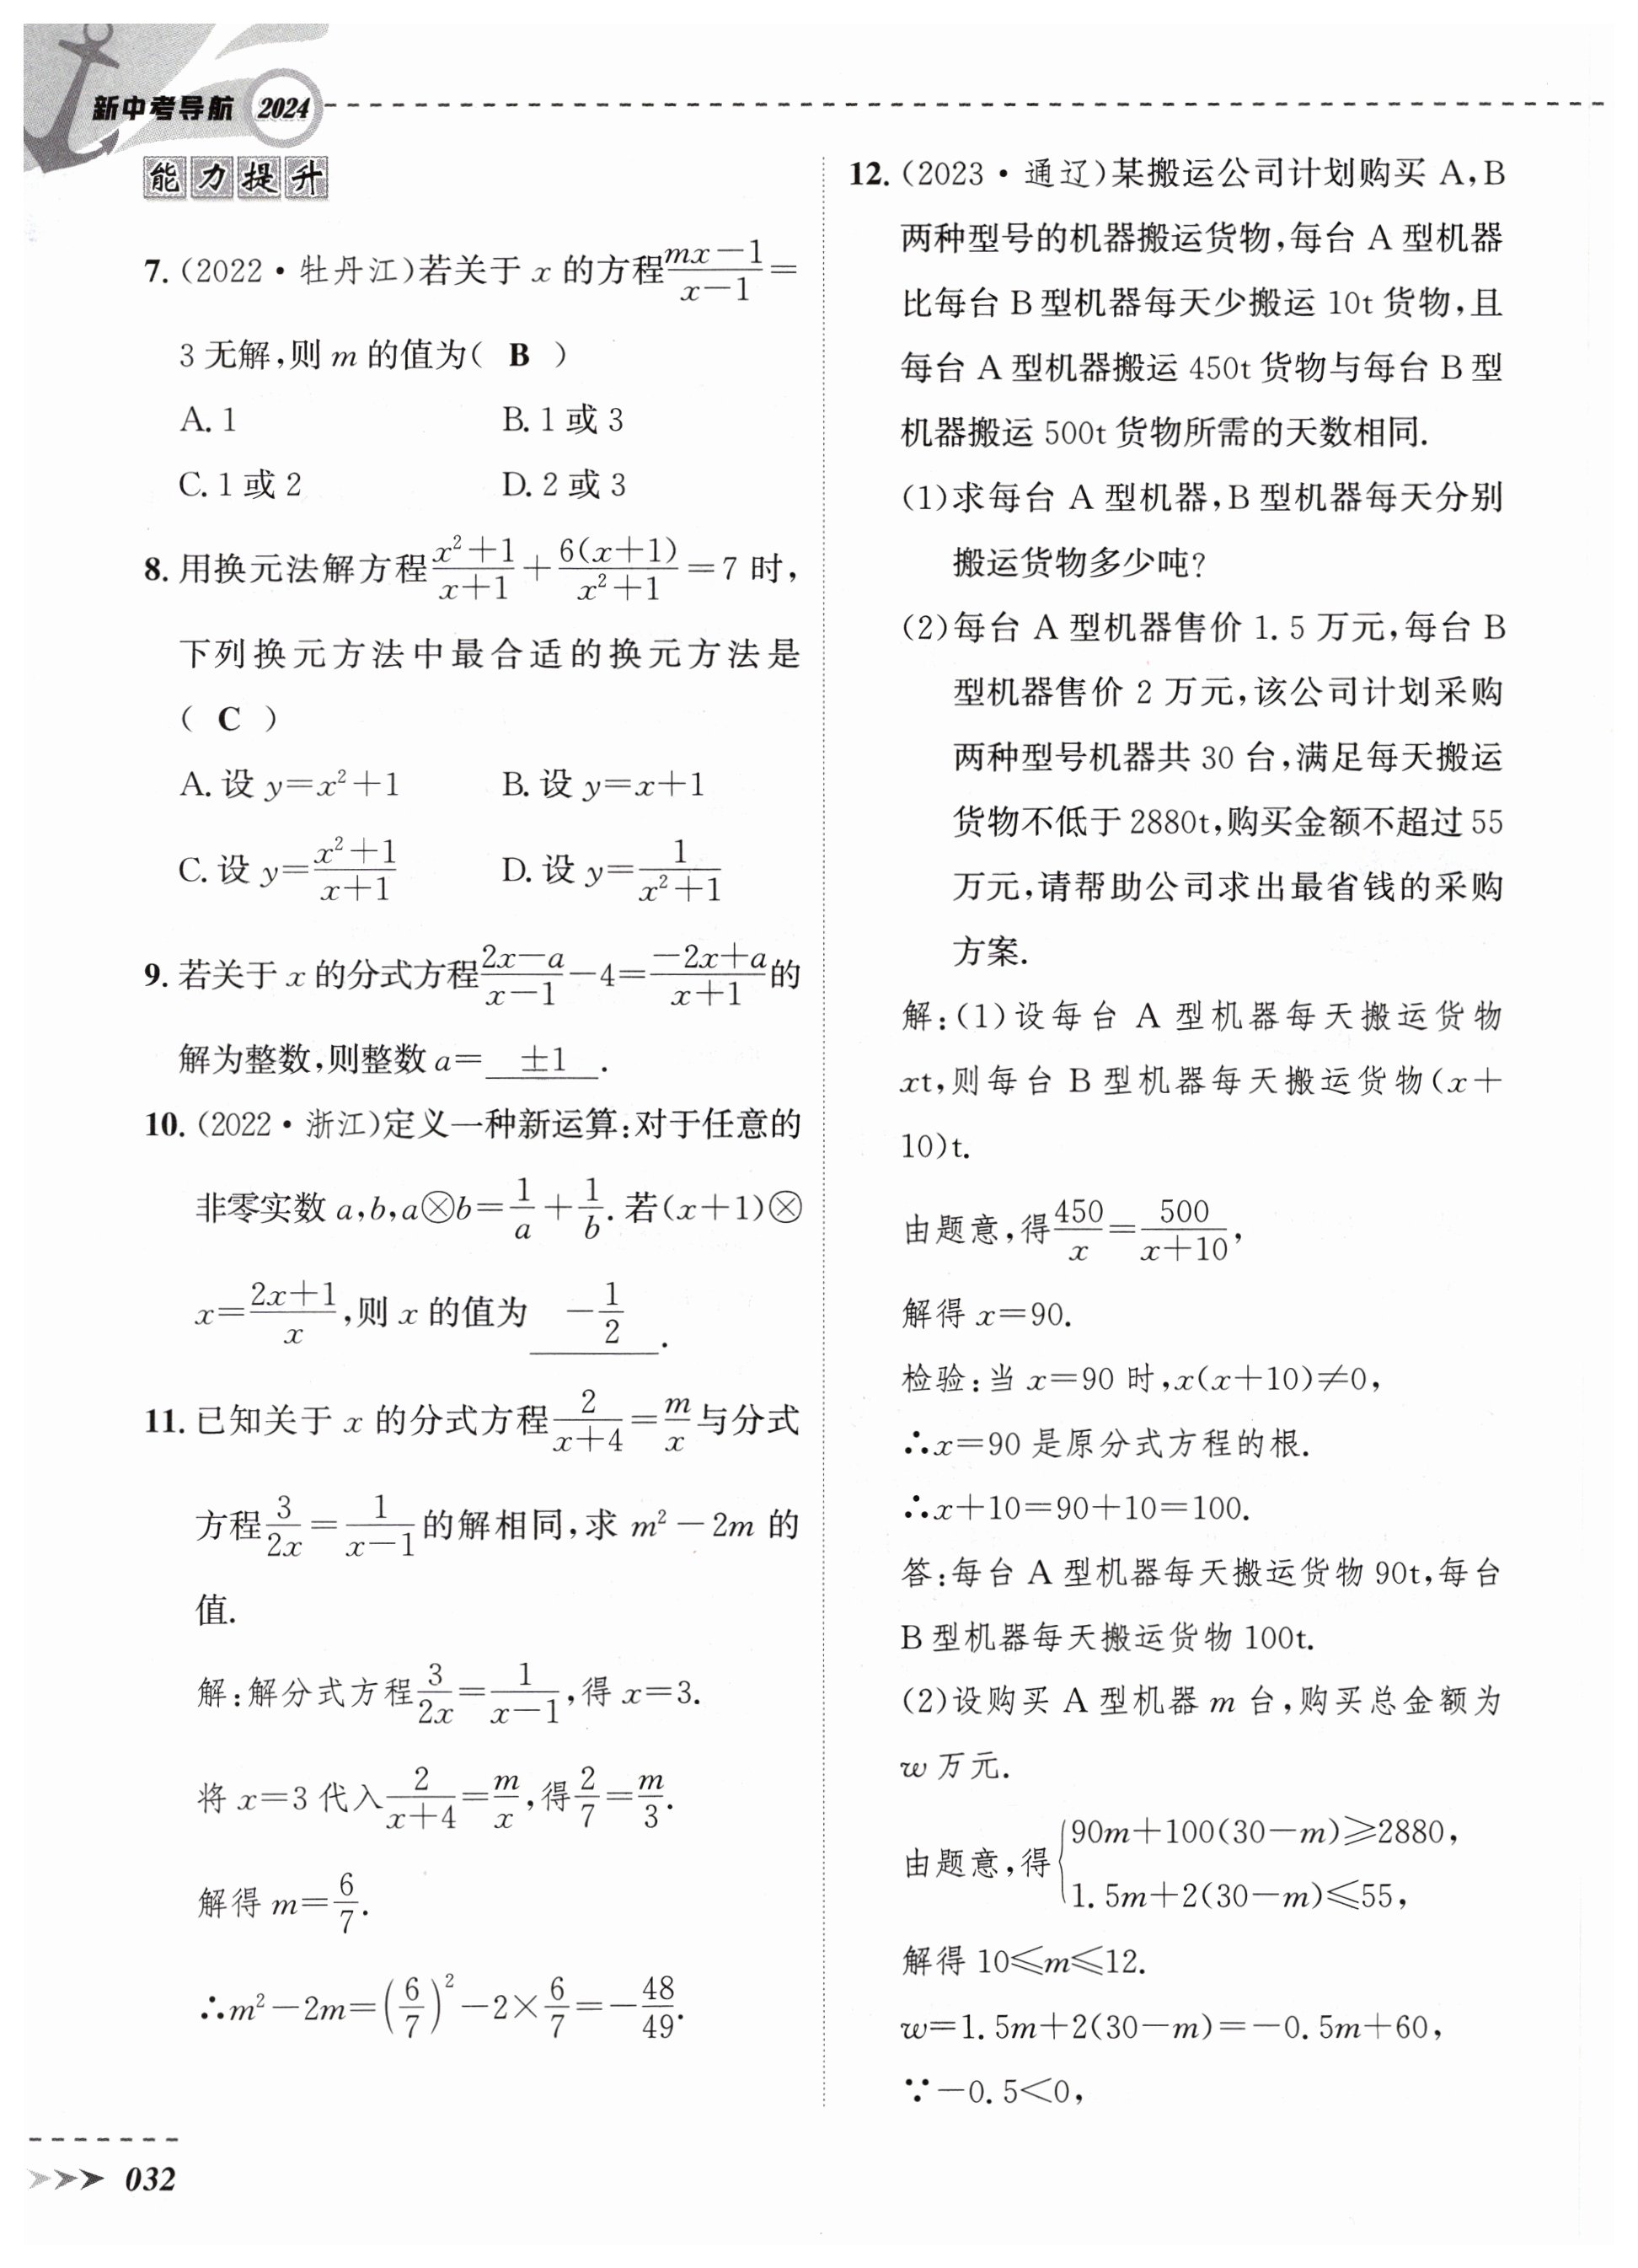 新中考导航 2024
能力提升
7.(2022·牡丹江)若关于 x 的方程\frac{mx-1}{x-1}=
3 无解,则 m 的值为( B )
A. 1 B. 1 或 3
C. 1 或 2 D. 2 或 3
8. 用换元法解方程\frac{x²+1}{x+1}+\frac{6(x+1)}{x²+1}=7 时,
下列换元方法中最合适的换元方法是
( C )
A. 设 y=x²+1 B. 设 y=x+1
C. 设 y=\frac{x²+1}{x+1} D. 设 y=\frac{1}{x²+1}
9. 若关于 x 的分式方程\frac{2x-a}{x-1}-4=\frac{-2x+a}{x+1}的
解为整数,则整数 a= ±1 .
10.(2022·浙江)定义一种新运算:对于任意的
非零实数 a,b,a⊗b=\frac{1}{a}+\frac{1}{b}. 若(x+1)⊗
x=\frac{2x+1}{x},则 x 的值为 -\frac{1}{2} .
11. 已知关于 x 的分式方程\frac{2}{x+4}=\frac{m}{x}与分式
方程\frac{3}{2x}=\frac{1}{x-1}的解相同,求 m²-2m 的
值.
解:解分式方程\frac{3}{2x}=\frac{1}{x-1},得 x=3.
将 x=3 代入\frac{2}{x+4}=\frac{m}{x},得\frac{2}{7}=\frac{m}{3}.
解得 m=\frac{6}{7}.
∴m²-2m=(\frac{6}{7})²-2×\frac{6}{7}=-\frac{48}{49}.
12.(2023·通辽)某搬运公司计划购买 A,B
两种型号的机器搬运货物,每台 A 型机器
比每台 B 型机器每天少搬运 10t 货物,且
每台 A 型机器搬运 450t 货物与每台 B 型
机器搬运 500t 货物所需的天数相同.
(1)求每台 A 型机器,B 型机器每天分别
搬运货物多少吨?
(2)每台 A 型机器售价 1.5 万元,每台 B
型机器售价 2 万元,该公司计划采购
两种型号机器共 30 台,满足每天搬运
货物不低于 2880t,购买金额不超过 55
万元,请帮助公司求出最省钱的采购
方案.
解:(1)设每台 A 型机器每天搬运货物
xt,则每台 B 型机器每天搬运货物(x+
10)t.
由题意,得\frac{450}{x}=\frac{500}{x+10},
解得 x=90.
检验:当 x=90 时,x(x+10)≠0,
∴x=90 是原分式方程的根.
∴x+10=90+10=100.
答:每台 A 型机器每天搬运货物 90t,每台
B 型机器每天搬运货物 100t.
(2)设购买 A 型机器 m 台,购买总金额为
w 万元.
由题意,得{90m+100(30-m)≥2880,
1.5m+2(30-m)≤55,
解得 10≤m≤12.
w=1.5m+2(30-m)=-0.5m+60,
∵-0.5<0,
032